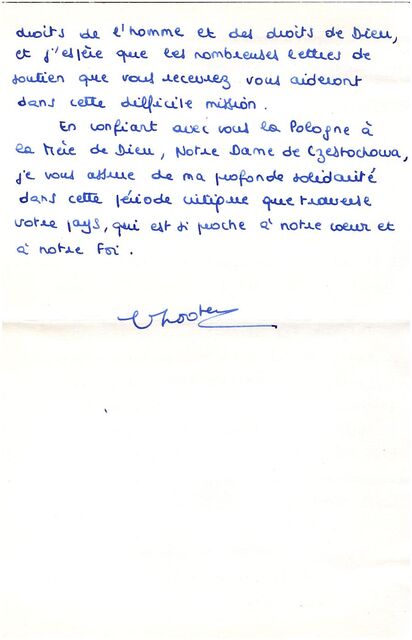 droits de l'homme et des droits de Dieu,
et j'espère que les nombreuses lettres de
soutien que vous recevrez vous aideront
dans cette difficile mission.
En confiant avec vous la Pologne à
la Mère de Dieu, Notre Dame de Czestochowa,
je vous assure de ma profonde solidarité
dans cette période critique que traverse
votre pays, qui est si proche à notre coeur et
à notre Foi.